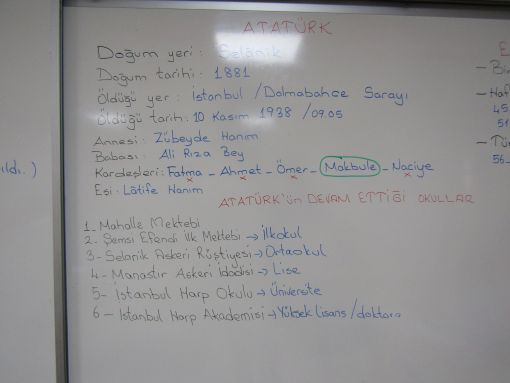 ATATÜRK
Doğum yeri: Selânik
Doğum tarihi: 1881
Öldüğü yer: İstanbul / Dolmabahçe Sarayı
Öldüğü tarih: 10 Kasım 1938 / 09.05
Annesi: Zübeyde Hanım
Babası: Ali Rıza Bey
Kardeşleri: Fatma - Ahmet - Ömer - Makbule - Naciye
Eşi: Lâtife Hanım
ATATÜRK'ün DEVAM ETTİĞİ OKULLAR
1- Mahalle Mektebi
2- Şemsi Efendi İlk Mektebi → İlkokul
3- Selanik Askeri Rüştiyesi → Ortaokul
4- Manastır Askeri İdadisi → Lise
5- İstanbul Harp Okulu → Üniversite
6- İstanbul Harp Akademisi → Yüksek lisans / doktora
ıldı. )
- Haf
45
51
- Tür
56-